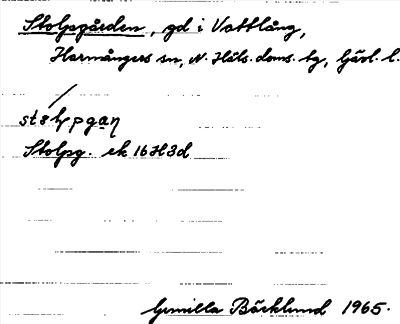 Stolpgården, gd i Vattlång,
Harmångers sn, N. Häls. doms. tg, Gävl. l.
Stolpg. ek 16H3d
Gunilla Bäcklund 1965.